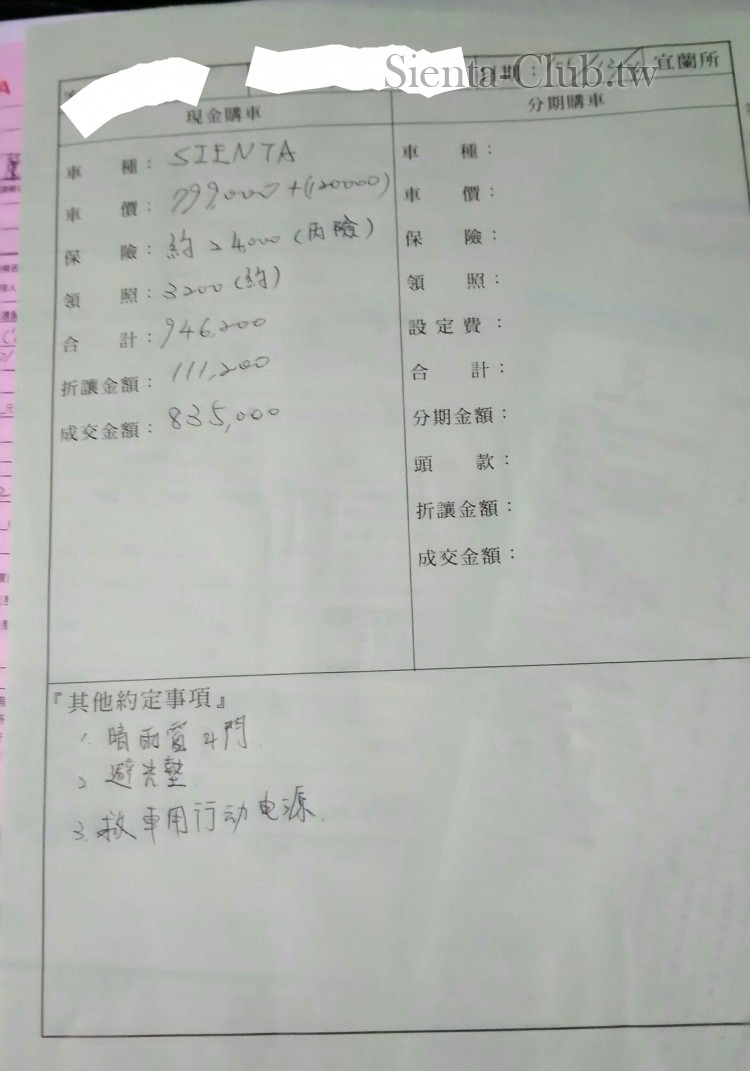 Sienta-Club.tw
期： 宜蘭所
現金購車
車　種：SIENTA
車　價：799,000+(120000)
保　險：約24000(丙險)
領　照：3200(約)
合　計：946,200
折讓金額：111,200
成交金額：835,000
分期購車
車　種：
車　價：
保　險：
領　照：
設定費：
合　計：
分期金額：
頭　款：
折讓金額：
成交金額：
『其他約定事項』
1. 晴雨窗4門
2 避光墊.
3.救車用行动电源.